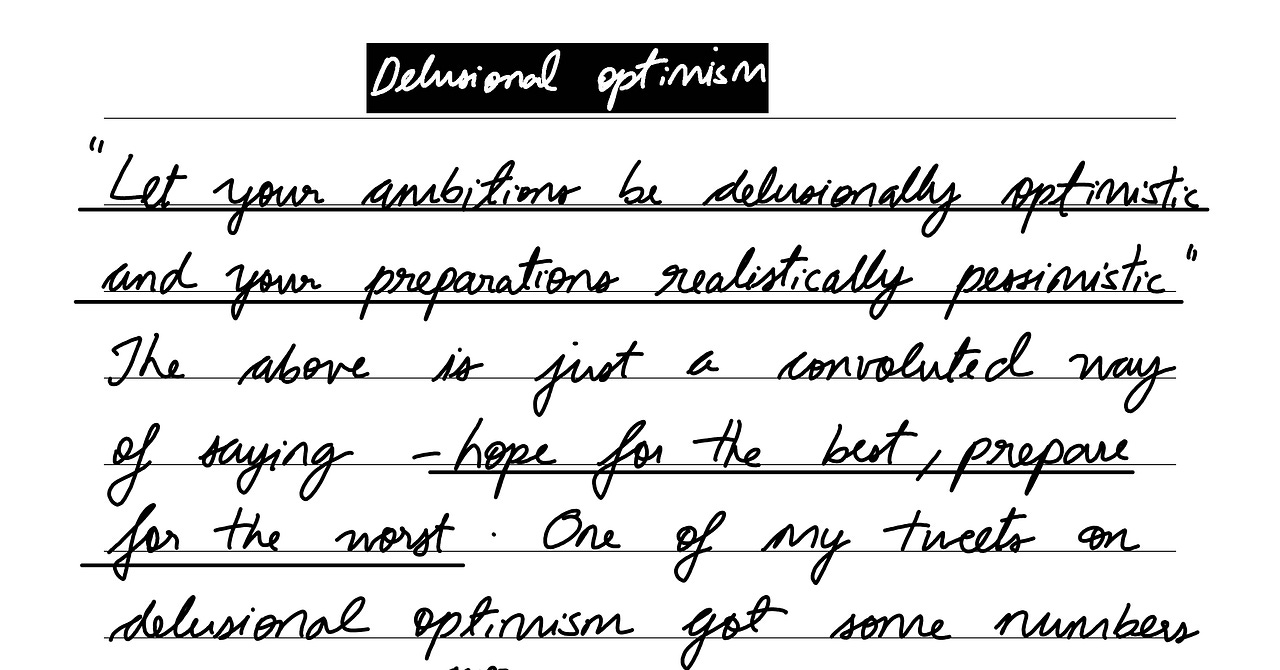 Delusional optimism
"Let your ambitions be delusionally optimistic
and your preparations realistically pessimistic"
The above is just a convoluted way
of saying – hope for the best, prepare
for the worst. One of my tweets on
delusional optimism got some numbers